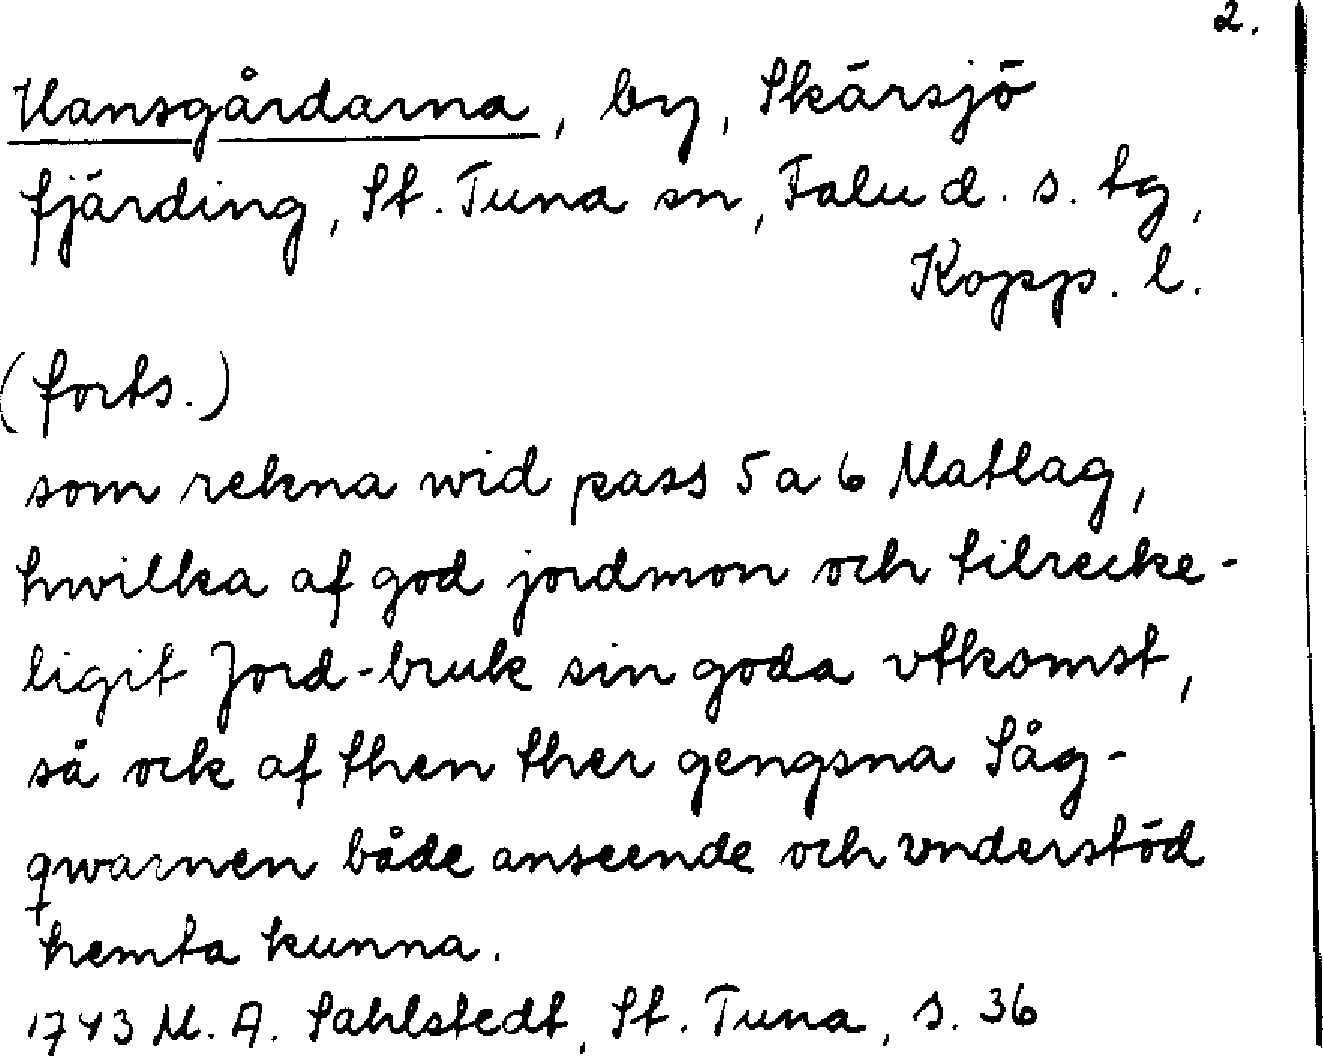 2.
Hansgårdarna, by, Skärsjö
fjärding, St. Tuna sn, Falu d. s. tg,
Kopp. l.
(forts.)
som rekna wid pass 5 a 6 Matlag,
hwilka af god jordmon och tilrecke-
ligit Jord-bruk sin goda vtkomst,
så ock af then ther gengsna Såg-
qwarnen både anseende och vnderstöd
hemta kunna.
1743 M. A. Sahlstedt, St. Tuna, s. 36